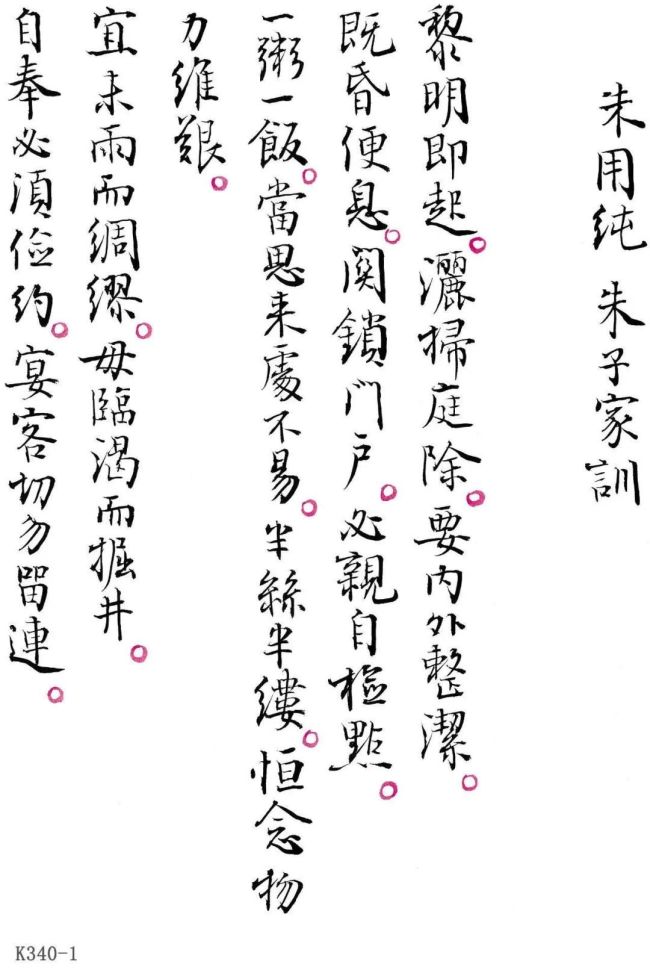 朱用純 朱子家訓
黎明即起。灑掃庭除。要內外整潔。
既昏便息。関鎖門户。必親自檢點。
一粥一飯。當思来處不易。半絲半縷。恒念物
力維艱。
宜未雨而綢繆。毋臨渴而掘井。
自奉必須儉約。宴客切勿留連。
K340-1